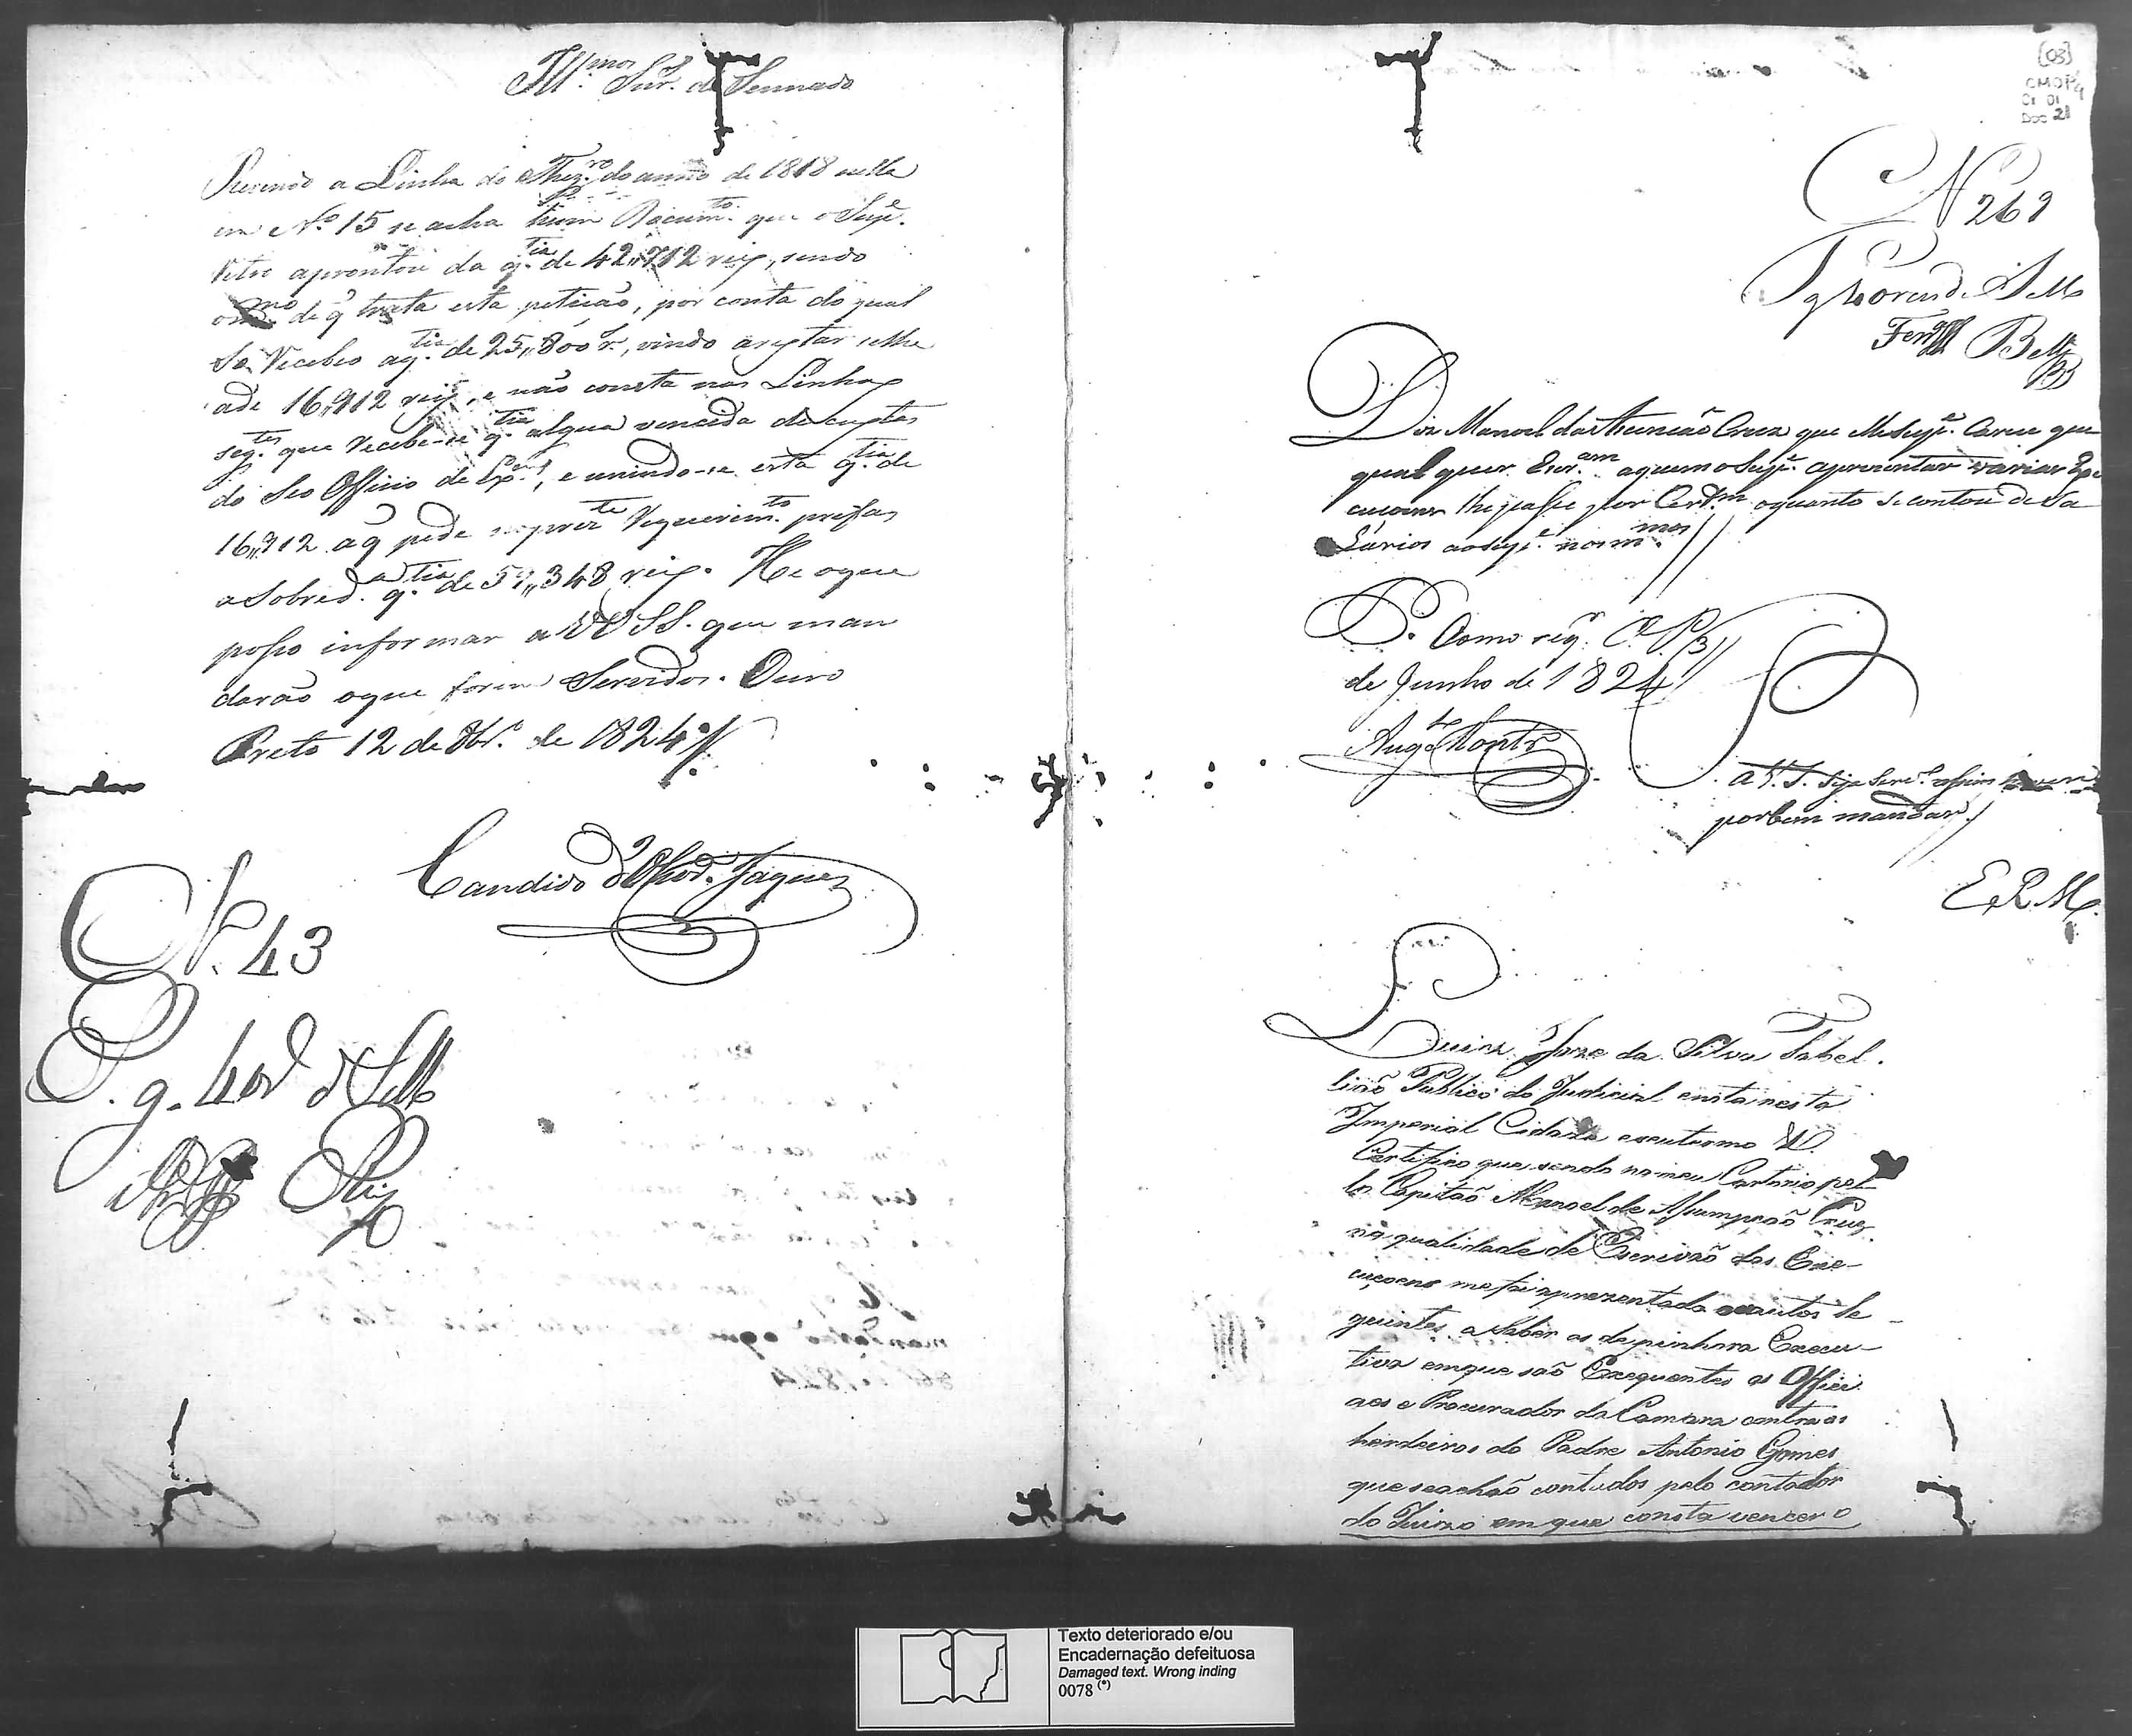 Ill.mos Snr.s do Sennado
Revendo a Linha do Thez.ro do anno de 1818 nella
em N.o 15 se acha hum Docum.to que o Sup.e
aprontou da q.tia de 42,,712 reis, sendo
o m.mo de q trata esta petição, por conta do qual
Se Recebeo a q.tia de 25,,800 r.s, vindo a restar selhe
a de 16,,912 reis, e não consta nas Linhas
seg.tes que Recebe-se q.tia algua vencida de custas
do Seo Officio de Esc.am, e unindo-se esta q.tia de
16,,912 a q pede no prez.te Requerim.to prefas
a Sobred.a q.tia de 59,,348 reis. He o que
posso informar a VV SS. que man
darão o que forem Servidos. Ouro
Preto 12 de 8br.o de 1824
Candido d'Oliv.ra Jaques
N. 43
P. g. 40 rs d Sello
[03]
CMOP
Cx 01
Doc 21
N 269
Pg 40 reis d. Sello
Diz Manoel da Asumcão Cruz que elle Sup.e carece que
qual quer Escr.am aquem o Sup.e aprezentar varias Exe
cucoens lhe passe por Cert.m o quanto se contou de Sa
Larios ao Sup.e nos m.mos //
P. Como req.r
de Junho de 1824
A V. S. Seja Serv.o assim
por bem mandar
E. R. M.
Luiz Joze da Silva Tabel.
lião Publico do Judicial e nota nesta
Imperial Cidade e seu termo &.
Certifico que sendo no meu Cartorio pe
lo Capitão Manoel de Asumpção Cruz
na qualidade de Escrivão das Exe-
cuçoens me foi aprezentado os autos Se-
guintes a Saber os de pinhora Execu-
tiva emque são Exequentes os Offici
aes e Procurador da Camara contra os
herdeiros do Padre Antonio Gomes
que se achão contados pelo contador
do Juizo em que consta vencer o
Texto deteriorado e/ou
Encadernação defeituosa
Damaged text. Wrong inding
0078 (*)